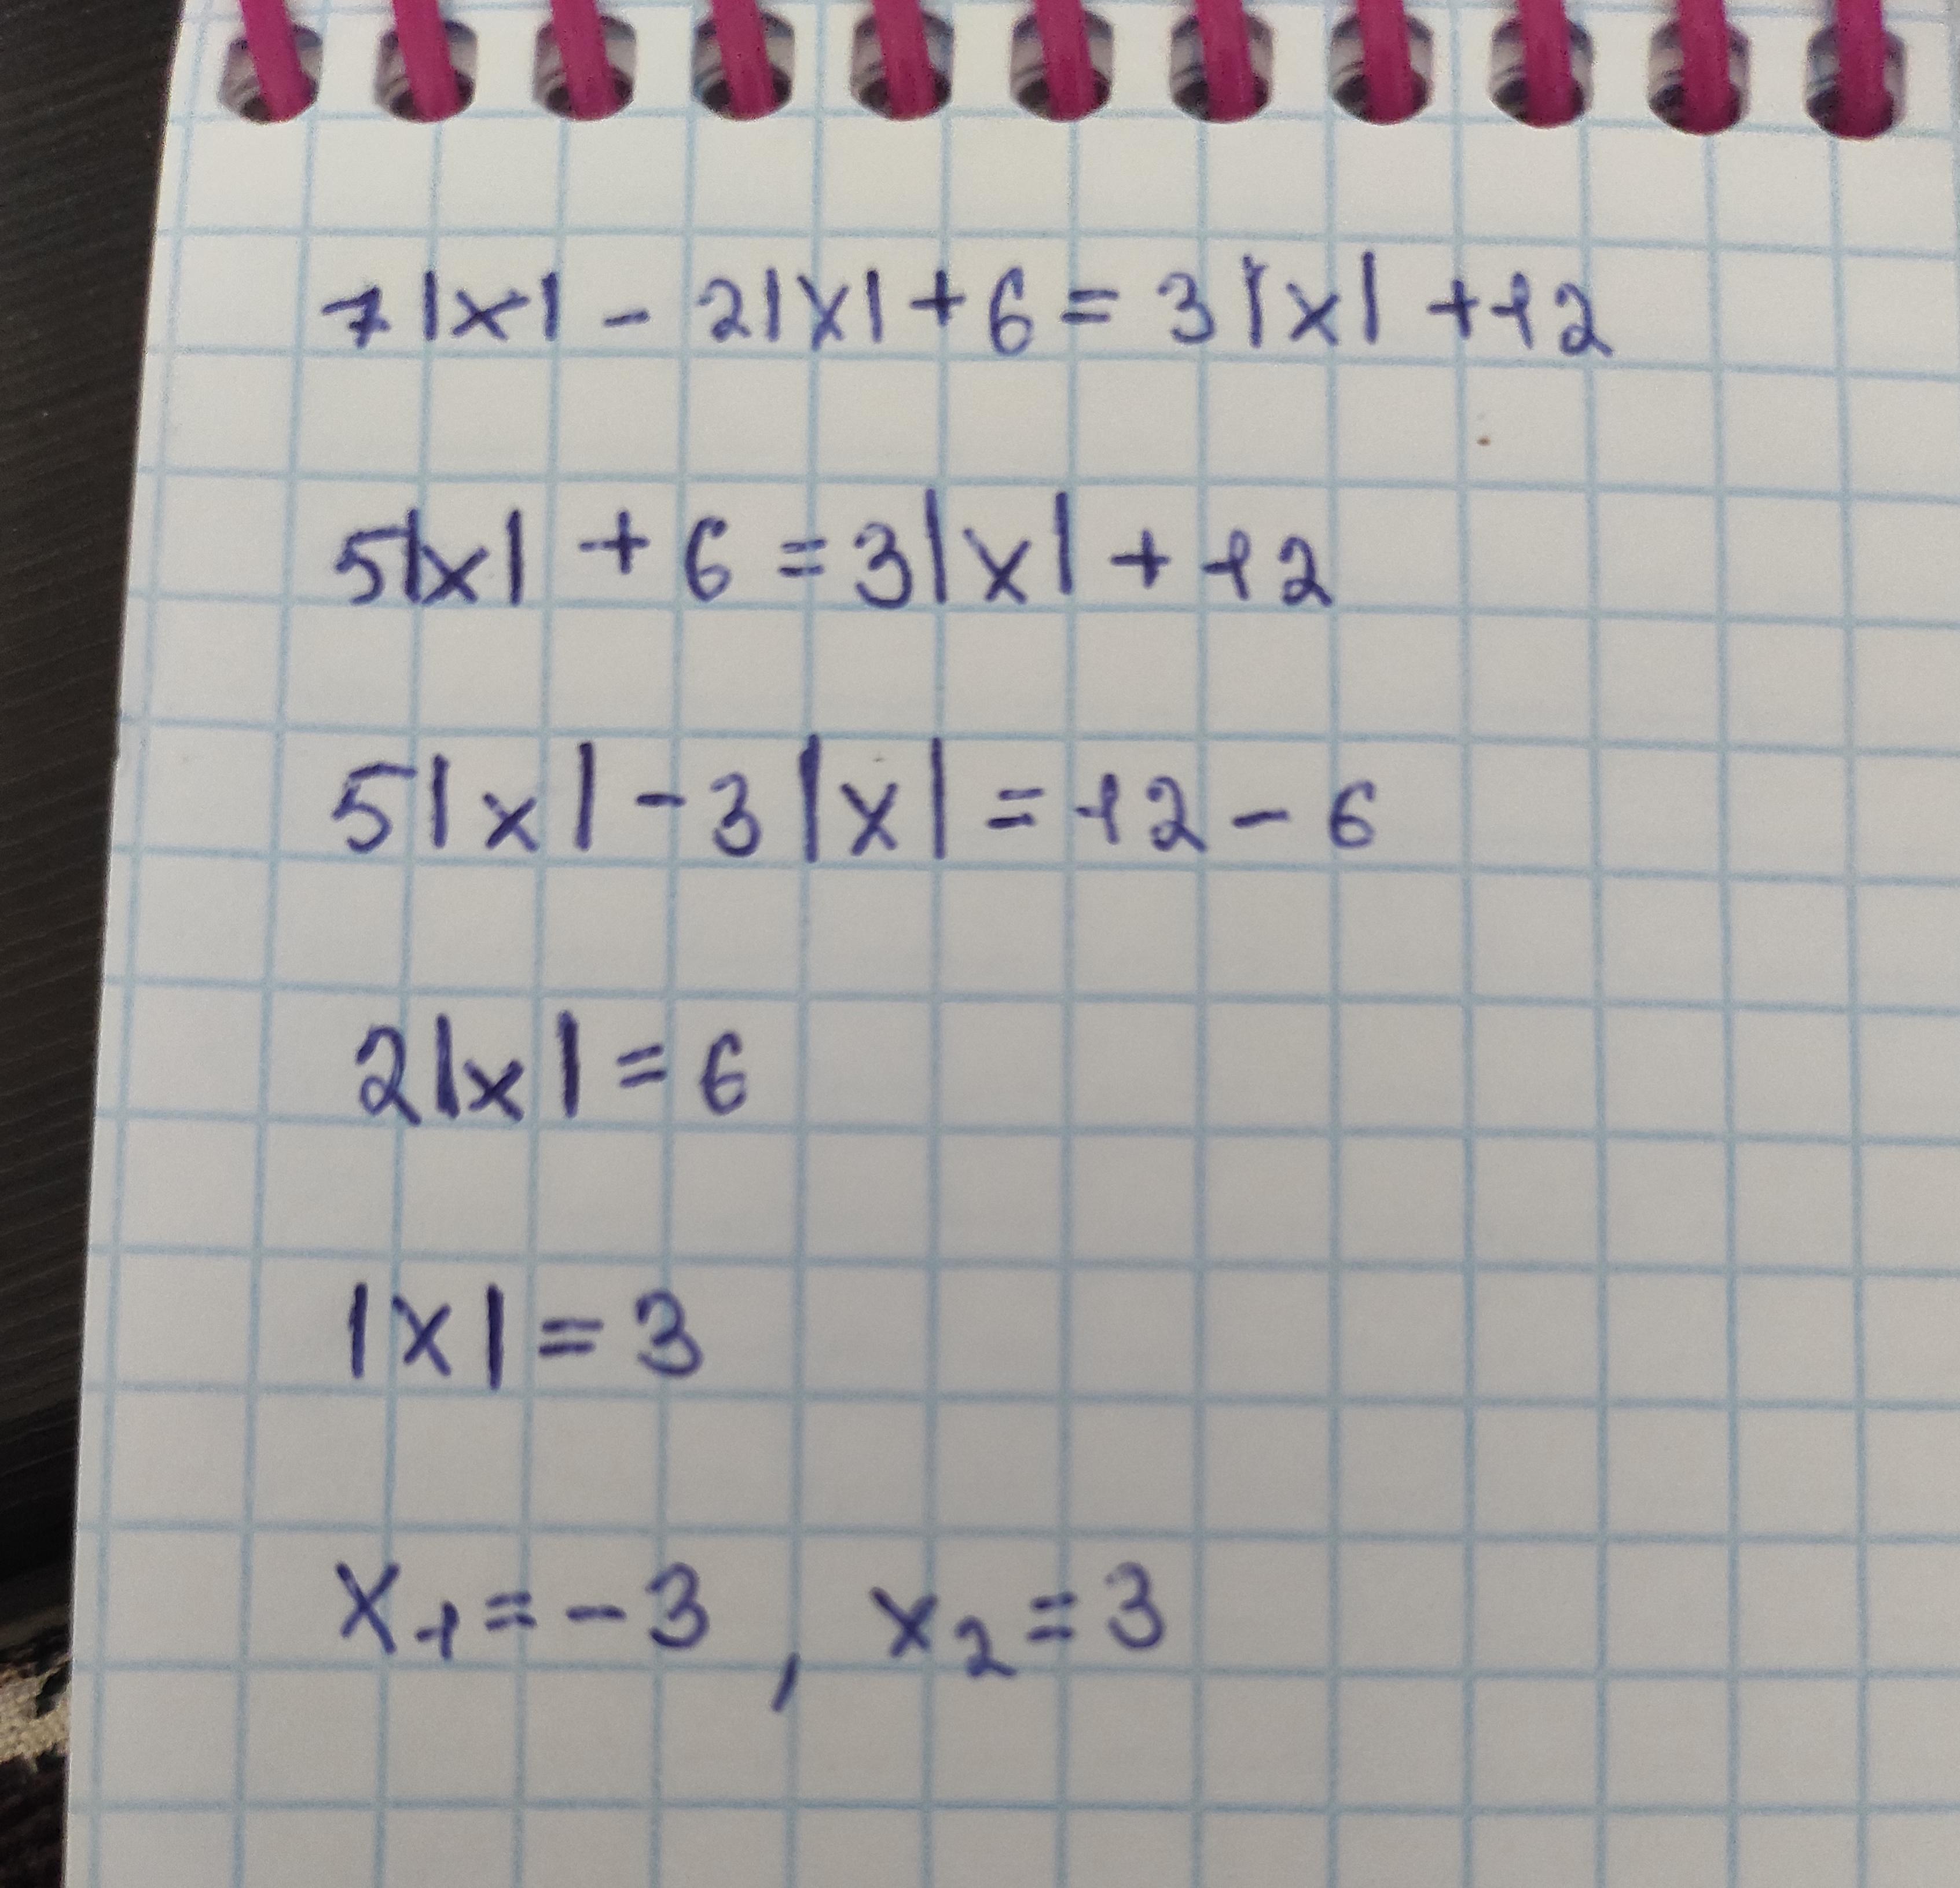 7|x| - 2|x| + 6 = 3|x| + 12
5|x| + 6 = 3|x| + 12
5|x| - 3|x| = 12 - 6
2|x| = 6
|x| = 3
x₁ = -3 , x₂ = 3